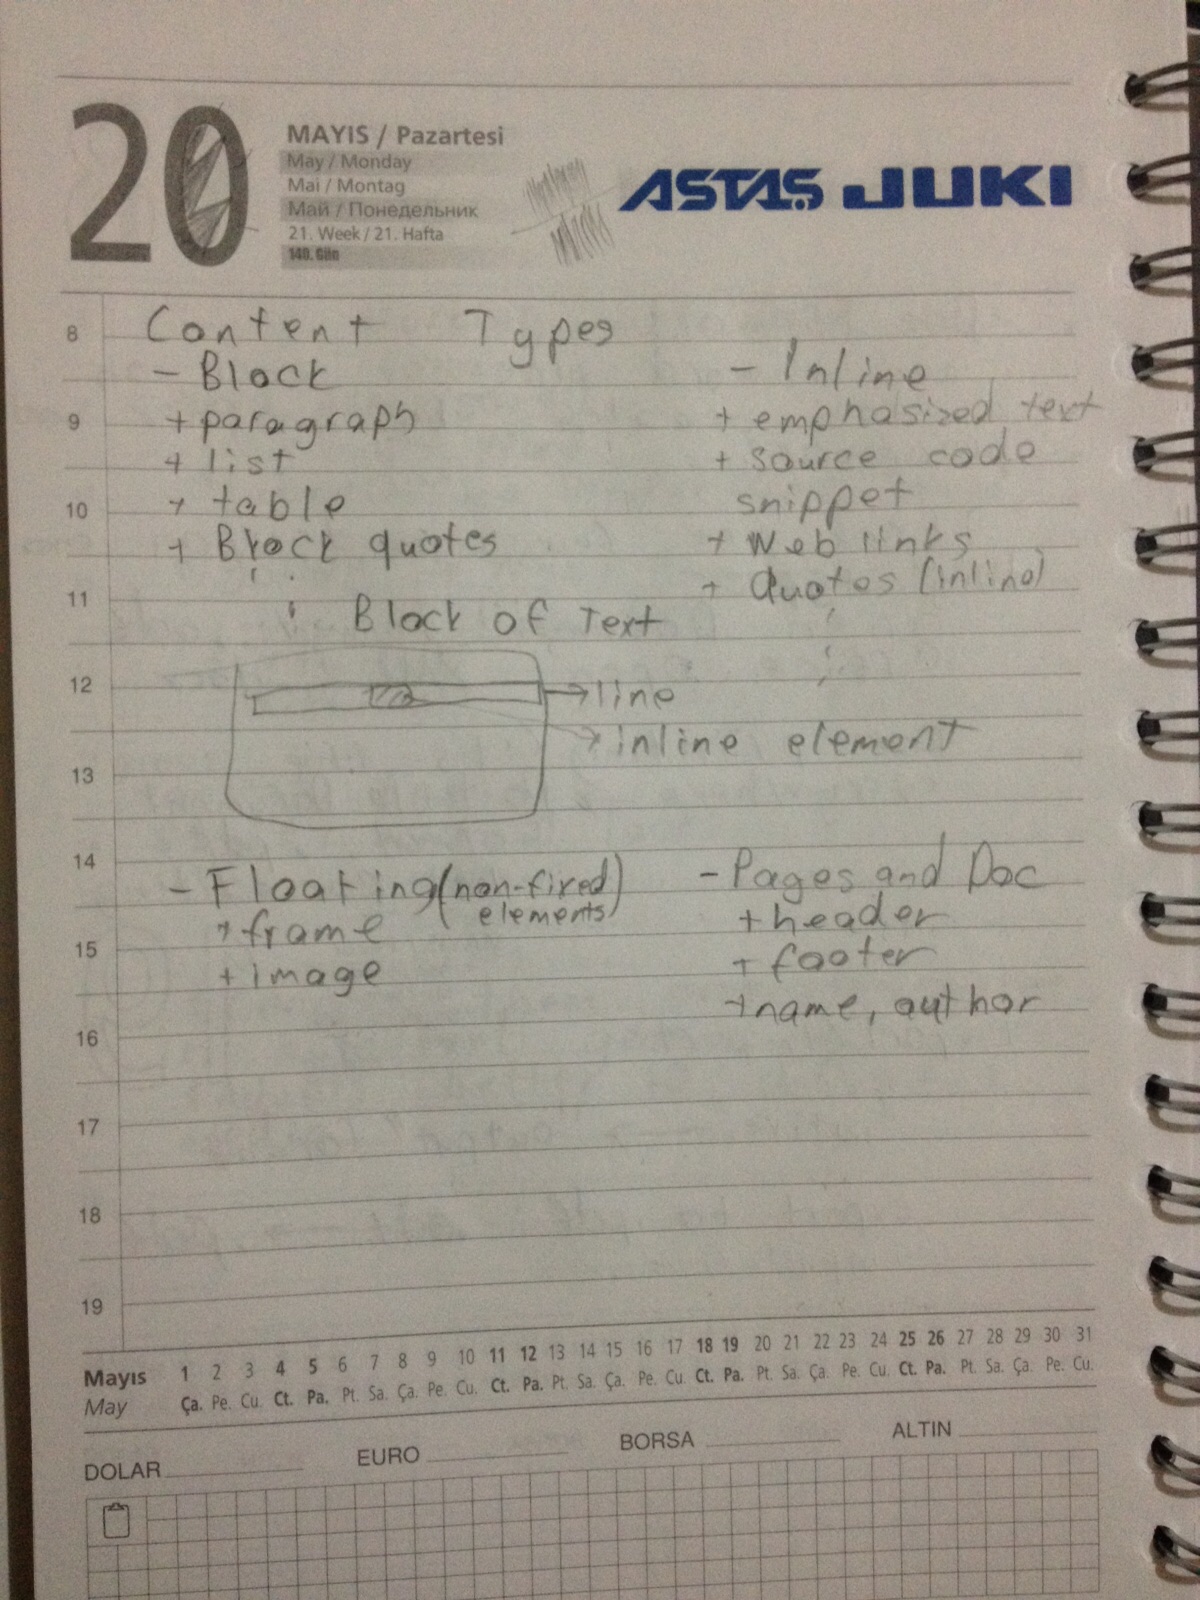 20
MAYIS / Pazartesi
May / Monday
Mai / Montag
Май / Понедельник
21. Week / 21. Hafta
140. Gün
ASTAŞ JUKI
8
Content Types
- Block
9
+ paragraph
+ list
10
+ table
+ Block quotes
- Inline
+ emphasized text
+ source code
snippet
+ Web links
+ Quotes (inline)
11
Block of Text
12
→ line
→ inline element
13
14
- Floating (non-fixed
elements)
+ frame
15
+ image
- Pages and Doc
+ header
+ footer
+ name, author
16
17
18
19
Mayıs 1 2 3 4 5 6 7 8 9 10 11 12 13 14 15 16 17 18 19 20 21 22 23 24 25 26 27 28 29 30 31
May Ça. Pe. Cu. Ct. Pa. Pt. Sa. Ça. Pe. Cu. Ct. Pa. Pt. Sa. Ça. Pe. Cu. Ct. Pa. Pt. Sa. Ça. Pe. Cu. Ct. Pa. Pt. Sa. Ça. Pe. Cu.
DOLAR EURO BORSA ALTIN